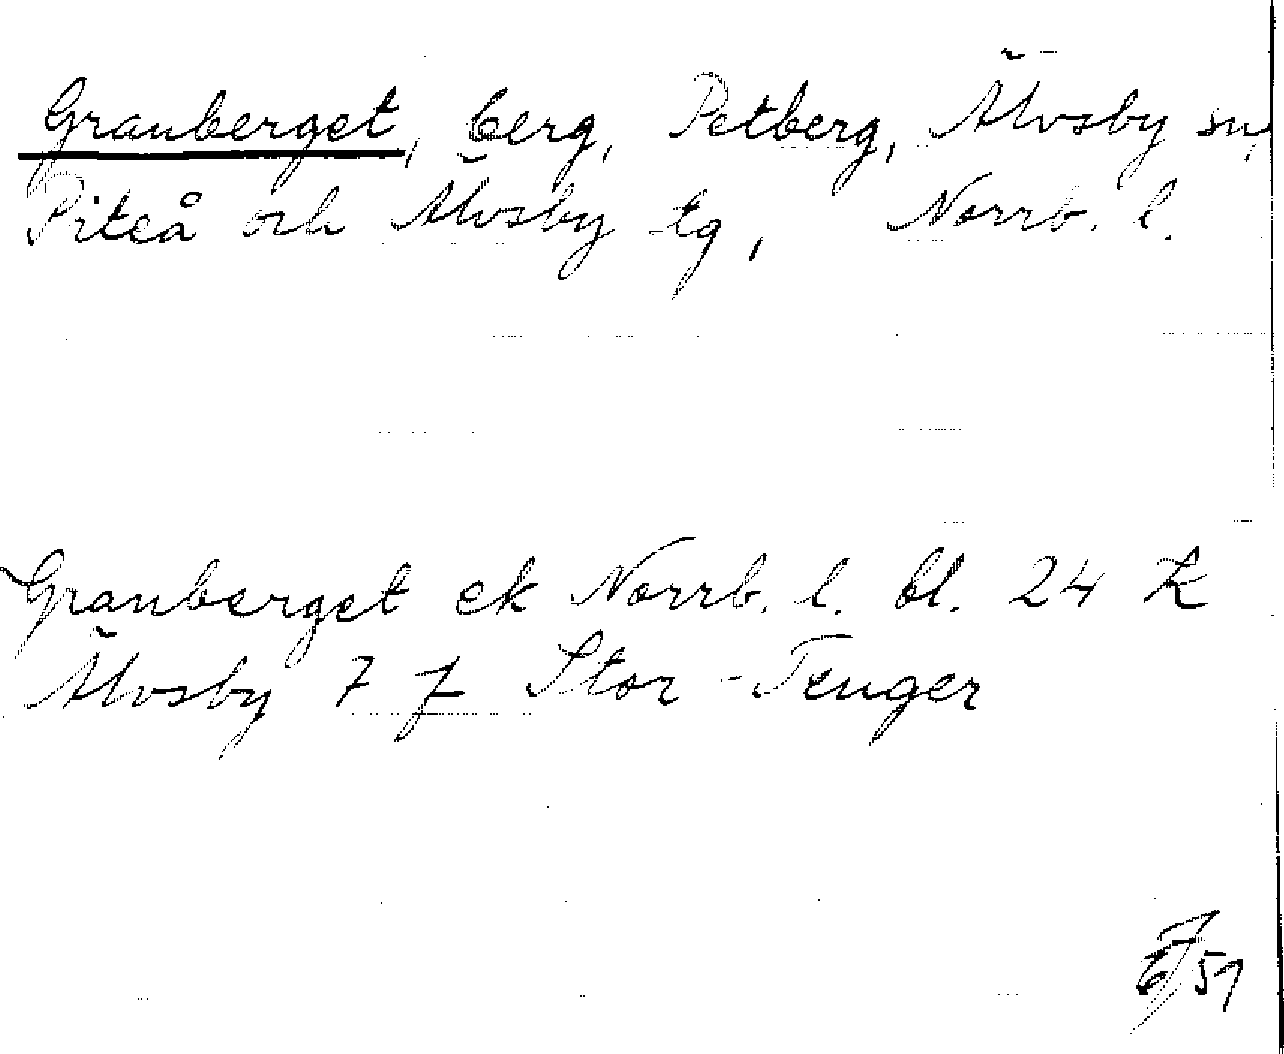 Granberget, berg, Petberg, Älvsby sn,
Piteå och Älvsby tg, Norrb. l.
Granberget ek Norrb. l. bl. 24
Älvsby 7 f Stor-Tenger
51